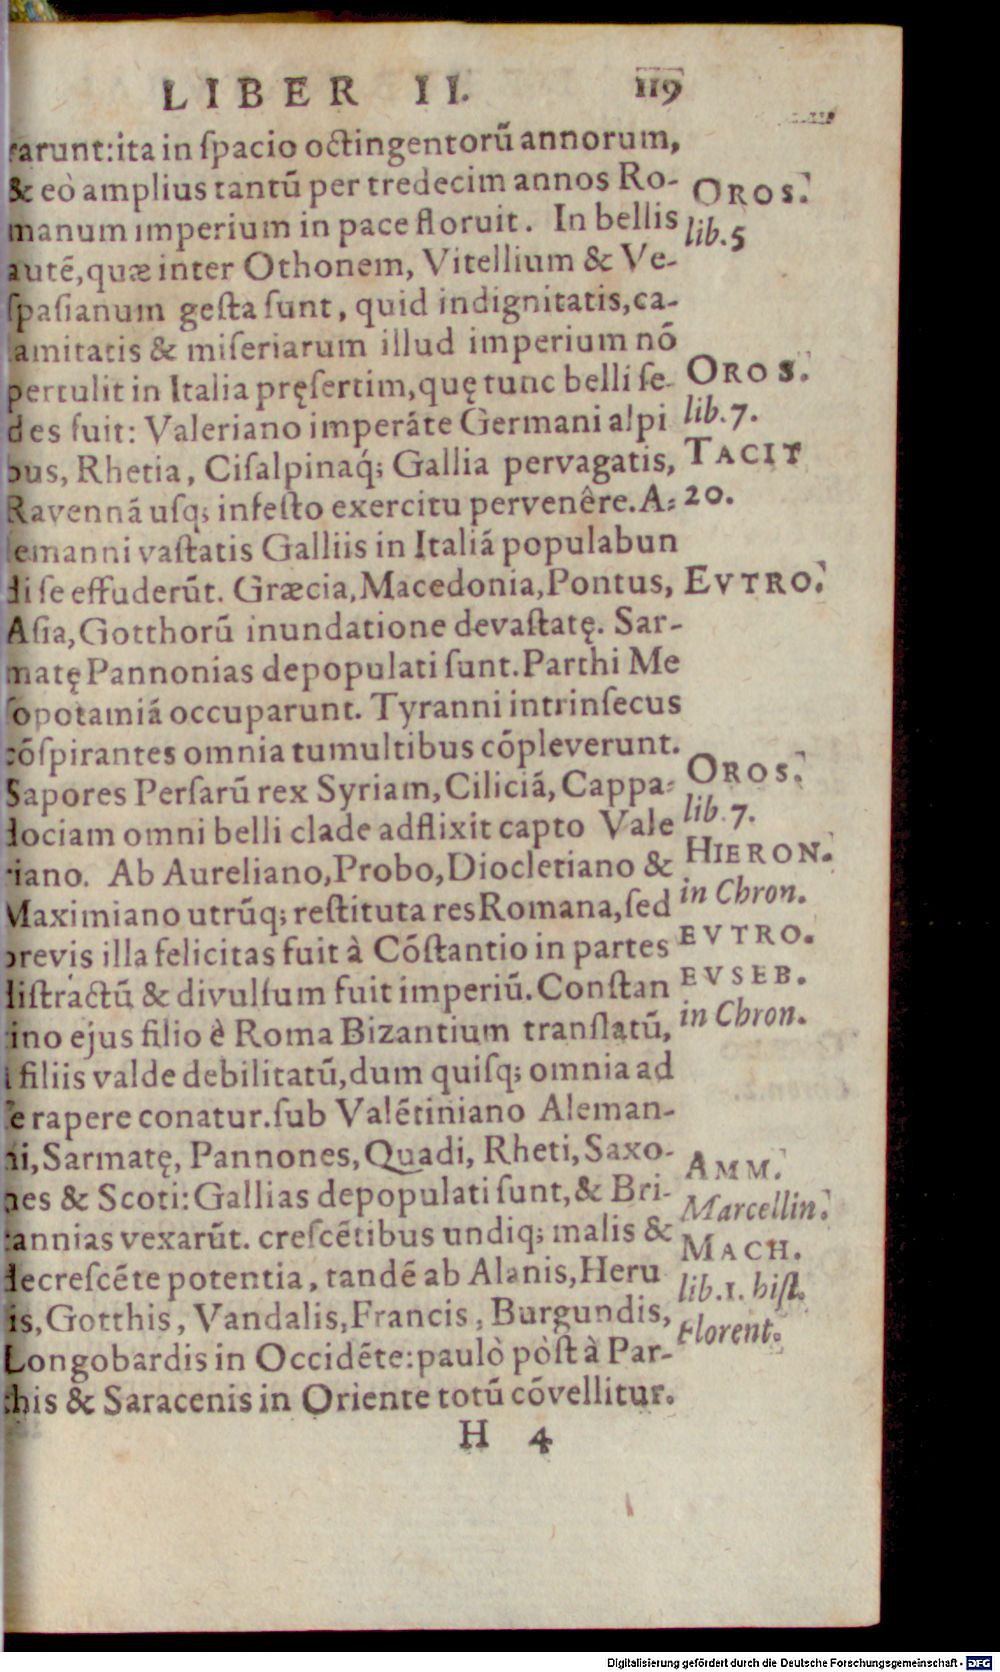 LIBER II. 119
rarunt:ita in ſpacio octingentorū annorum,
& eò amplius tantū per tredecim annos Ro-
manum imperium in pace floruit. In bellis
autē,quæ inter Othonem, Vitellium & Ve-
ſpaſianum geſta ſunt, quid indignitatis,ca-
lamitatis & miſeriarum illud imperium nō
pertulit in Italia pręſertim,quę tunc belli ſe-
des fuit: Valeriano imperāte Germani alpi
bus, Rhetia, Ciſalpinaq́; Gallia pervagatis,
Ravennā uſq; infeſto exercitu pervenêre. A-
lemanni vaſtatis Galliis in Italiā populabun
di ſe effuderūt. Græcia,Macedonia,Pontus,
Aſia,Gotthorū inundatione devaſtatę. Sar-
matę Pannonias depopulati ſunt.Parthi Me
ſopotamiā occuparunt. Tyranni intrinſecus
cōſpirantes omnia tumultibus cōpleverunt.
Sapores Perſarū rex Syriam,Ciliciā, Cappa-
dociam omni belli clade adflixit capto Vale
riano. Ab Aureliano,Probo,Diocletiano &
Maximiano utrūq; reſtituta res Romana,ſed
brevis illa felicitas fuit à Cōſtantio in partes
diſtractū & divulſum fuit imperiū. Conſtan
tino ejus filio è Roma Bizantium tranſlatū,
à filiis valde debilitatū,dum quiſq; omnia ad
ſe rapere conatur.ſub Valētiniano Aleman-
ni,Sarmatę, Pannones,Quadi, Rheti,Saxo-
nes & Scoti:Gallias depopulati ſunt,& Bri-
tannias vexarūt. creſcētibus undiq; malis &
decreſcēte potentia, tandē ab Alanis,Heru
lis,Gotthis, Vandalis,Francis, Burgundis,
Longobardis in Occidēte:paulò pòſt à Par-
this & Saracenis in Oriente totū cōvellitur.
H 4
OROS.
lib.5
OROS.
lib.7.
TACIT
20.
EVTRO.
OROS.
lib.7.
HIERON.
in Chron.
EVTRO.
EVSEB.
in Chron.
AMM.
Marcellin.
MACH.
lib.1. hiſt.
Florent.
Digitalisierung gefördert durch die Deutsche Forschungsgemeinschaft - DFG